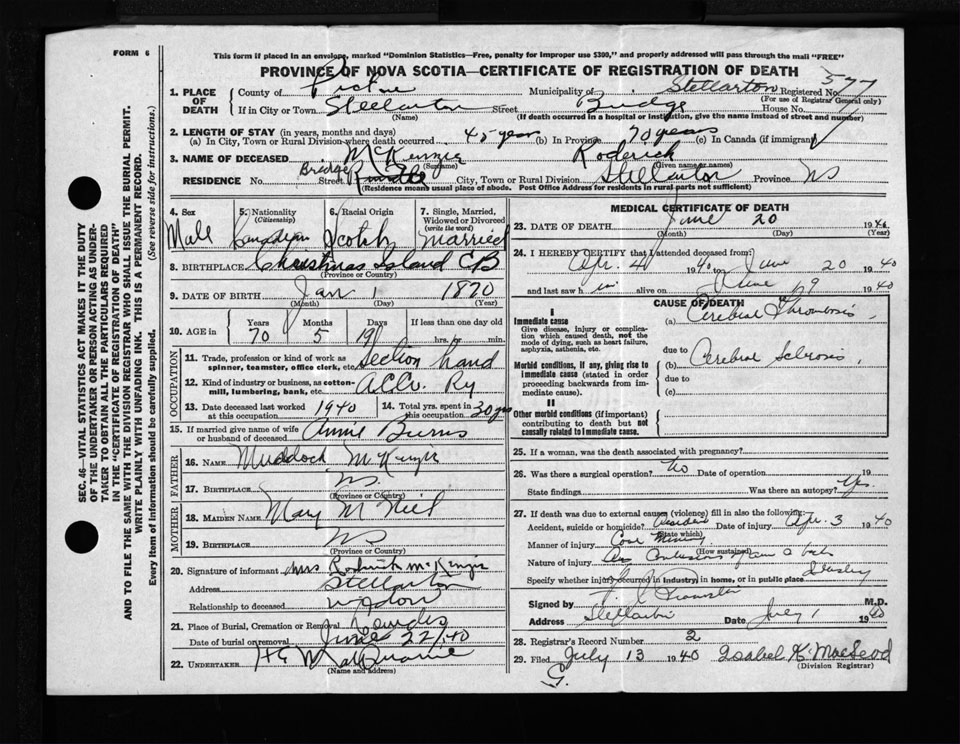 FORM 6
This form if placed in an envelope, marked "Dominion Statistics—Free, penalty for improper use $300," and properly addressed will pass through the mail "FREE"
PROVINCE OF NOVA SCOTIA—CERTIFICATE OF REGISTRATION OF DEATH
SEC. 46—VITAL STATISTICS ACT MAKES IT THE DUTY
OF THE UNDERTAKER OR PERSON ACTING AS UNDER-
TAKER TO OBTAIN ALL THE PARTICULARS REQUIRED
IN THE "CERTIFICATE OF REGISTRATION OF DEATH"
AND TO FILE THE SAME WITH THE DIVISION REGISTRAR WHO SHALL ISSUE THE BURIAL PERMIT.
WRITE PLAINLY WITH UNFADING INK. THIS IS A PERMANENT RECORD.
Every item of information should be carefully supplied. (See reverse side for instructions.)
1. PLACE OF DEATH County of Pictou Municipality of Stellarton Registered No. 577
(For use of Registrar General only)
If in City or Town Stellarton Street Bridge House No.
(Name) (If death occurred in a hospital or institution, give the name instead of street and number)
2. LENGTH OF STAY (in years, months and days)
(a) In City, Town or Rural Division where death occurred 45 years (b) In Province 70 years (c) In Canada (if immigrant)
3. NAME OF DECEASED McKenzie Roderick
(Surname) (Given name or names)
RESIDENCE No. Bridge Street City, Town or Rural Division Stellarton Province NS
(Residence means usual place of abode. Post Office Address for residents in rural parts not sufficient)
4. Sex Male
5. Nationality (Citizenship) Canadian
6. Racial Origin Scotch
7. Single, Married, Widowed or Divorced (write the word) Married
8. BIRTHPLACE Christmas Island CB
(Province or Country)
9. DATE OF BIRTH Jan 1 1870
(Month) (Day) (Year)
10. AGE in Years 70 Months 5 Days 19 If less than one day hrs. or min.
OCCUPATION
11. Trade, profession or kind of work as spinner, teamster, office clerk, etc. Section hand
12. Kind of industry or business, as cotton-mill, lumbering, bank, etc. Ry
13. Date deceased last worked at this occupation 1940
14. Total yrs. spent in this occupation 30 yrs
15. If married give name of wife or husband of deceased Annie Burns
FATHER
16. NAME Murdock McKenzie
17. BIRTHPLACE NS
(Province or Country)
MOTHER
18. MAIDEN NAME Mary McNiel
19. BIRTHPLACE NS
(Province or Country)
20. Signature of informant Mrs Roderick McKenzie
Address Stellarton
Relationship to deceased widow
21. Place of Burial, Cremation or Removal Lourdes
Date of burial or removal June 22/40
22. UNDERTAKER
(Name and Address)
MEDICAL CERTIFICATE OF DEATH
23. DATE OF DEATH June 20 1940
(Month) (Day) (Year)
24. I HEREBY CERTIFY that I attended deceased from:
Apr. 4 1940 June 20 1940
and last saw him alive on June 19 1940
CAUSE OF DEATH
I
Immediate cause
Give disease, injury or complication which caused death, not the mode of dying, such as heart failure, asphyxia, asthenia, etc.
(a) Cerebral Thrombosis
due to
Morbid conditions, if any, giving rise to immediate cause (stated in order proceeding backwards from immediate cause)
(b) Cerebral Sclerosis
due to
(c)
II
Other morbid conditions (if important) contributing to death but not causally related to immediate cause.
25. If a woman, was the death associated with pregnancy?
26. Was there a surgical operation? No Date of operation 19
State findings Was there an autopsy?
27. If death was due to external causes (violence) fill in also the following:
Accident, suicide or homicide? Accident Date of injury Apr. 3 1940
(State which)
Manner of injury
(How sustained)
Nature of injury
Specify whether injury occurred in industry, in home, or in public place Industry
Signed by M.D.
Address Stellarton Date July 1 1940
28. Registrar's Record Number 2
29. Filed July 13 1940 Isabel K. MacLeod
(Division Registrar)
G.